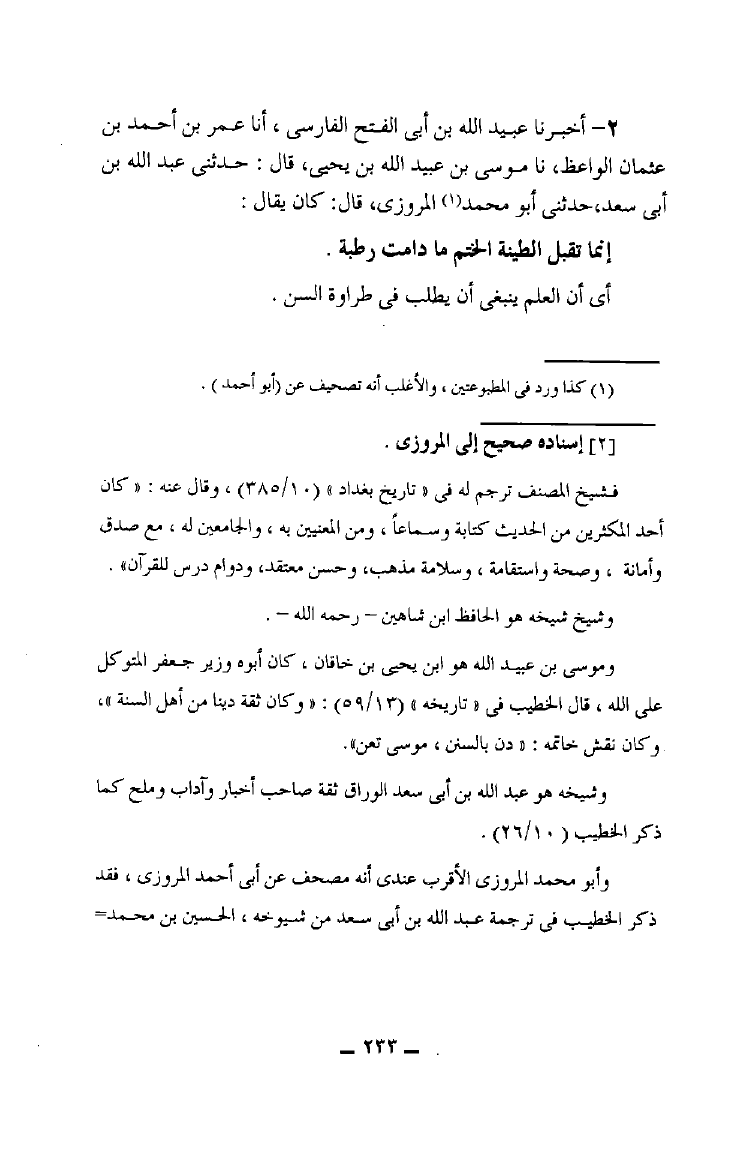 ٢- أخبرنا عبيد الله بن أبى الفتح الفارسى ، أنا عمر بن أحمد بن
عثمان الواعظ، نا موسى بن عبيد الله بن يحيى، قال : حدثنى عبد الله بن
أبى سعد،حدثنى أبو محمد(١) المروزى، قال: كان يقال :
إنما تقبل الطينة الختم ما دامت رطبة .
أى أن العلم ينبغى أن يطلب فى طراوة السن .
(١) كذا ورد فى المطبوعتين ، والأغلب أنه تصحيف عن (أبو أحمد ) .
[٢] إسناده صحيح إلى المروزى .
فشيخ المصنف ترجم له فى « تاريخ بغداد » (٣٨٥/١٠) ، وقال عنه : « كان
أحد المكثرين من الحديث كتابة وسماعاً ، ومن المعنيين به ، والجامعين له ، مع صدق
وأمانة ، وصحة واستقامة ، وسلامة مذهب، وحسن معتقد، ودوام درس للقرآن» .
وشيخ شيخه هو الحافظ ابن شاهين – رحمه الله – .
وموسى بن عبيد الله هو ابن يحيى بن خاقان ، كان أبوه وزير جعفر المتوكل
على الله ، قال الخطيب فى « تاريخه » (٥٩/١٣) : « وكان ثقة دينا من أهل السنة »،
وكان نقش خاتمه : « دن بالسنن ، موسى تعن».
وشيخه هو عبد الله بن أبى سعد الوراق ثقة صاحب أخبار وآداب وملح كما
ذكر الخطيب ( ٢٦/١٠) .
وأبو محمد المروزى الأقرب عندى أنه مصحف عن أبى أحمد المروزى ، فقد
ذكر الخطيب فى ترجمة عبد الله بن أبى سعد من شيوخه ، الحسين بن محمد=
– ٢٣٣ –